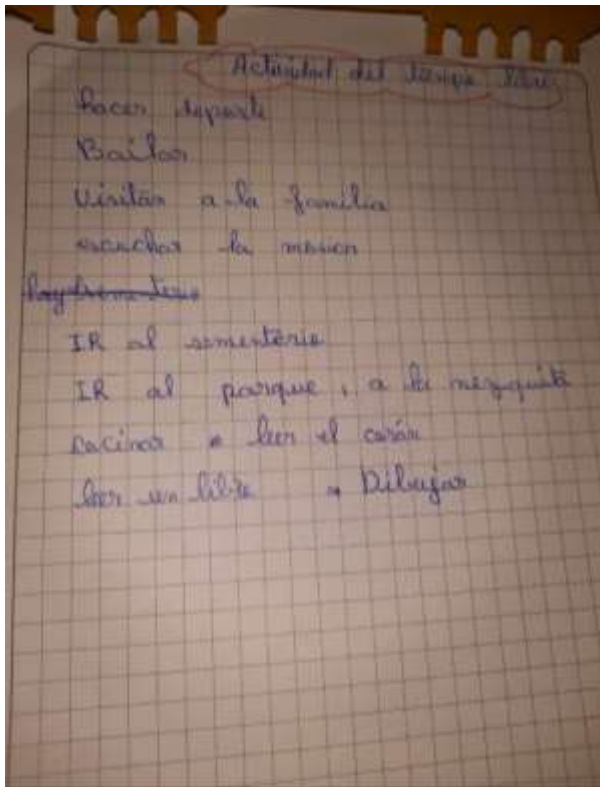 Actividad del tiempo libre
hacer deporte
Bailar
Visitar a la familia
escuchar la
IR al sementerio
IR al parque, a la mezquita
cocinar * leer el corán
leer un libro * Dibujar